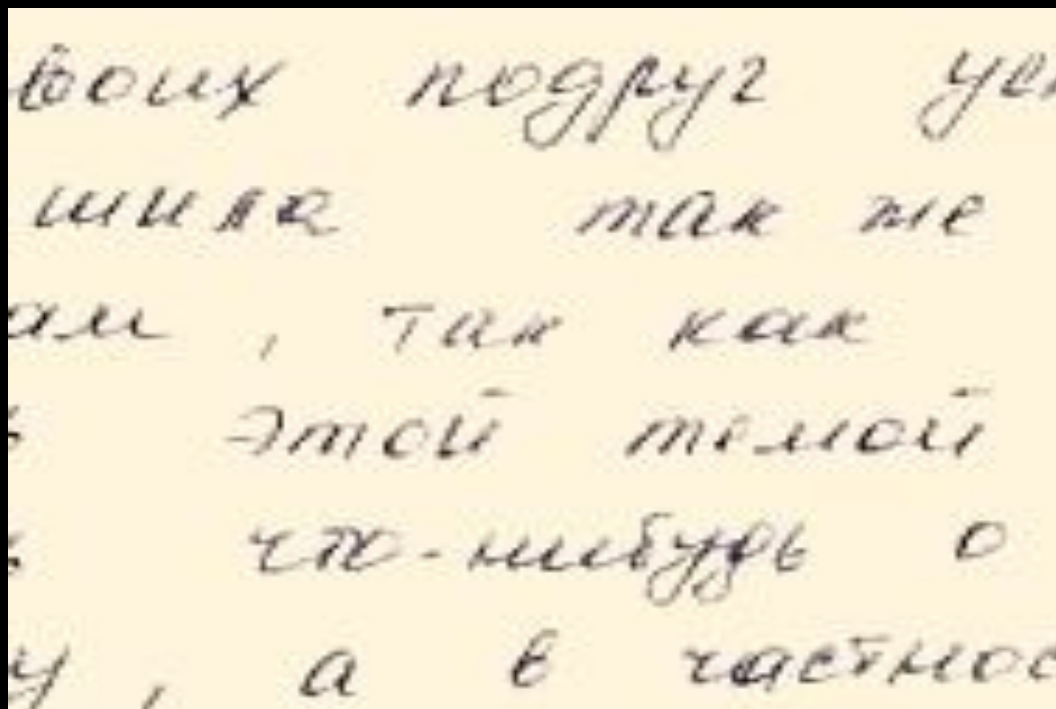 воих подруг
шила так же
ам , так как
этой темой
что-нибудь о
у , а в частнос